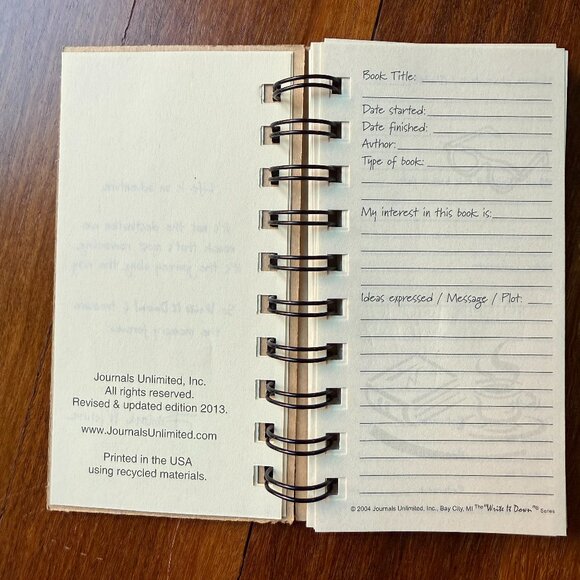 Journals Unlimited, Inc.
All rights reserved.
Revised & updated edition 2013.
www.JournalsUnlimited.com
Printed in the USA
using recycled materials.
Book Title:
Date started:
Date finished:
Author:
Type of book:
My interest in this book is:
Ideas expressed / Message / Plot:
© 2004 Journals Unlimited, Inc., Bay City, MI The "Write It Down"® Series